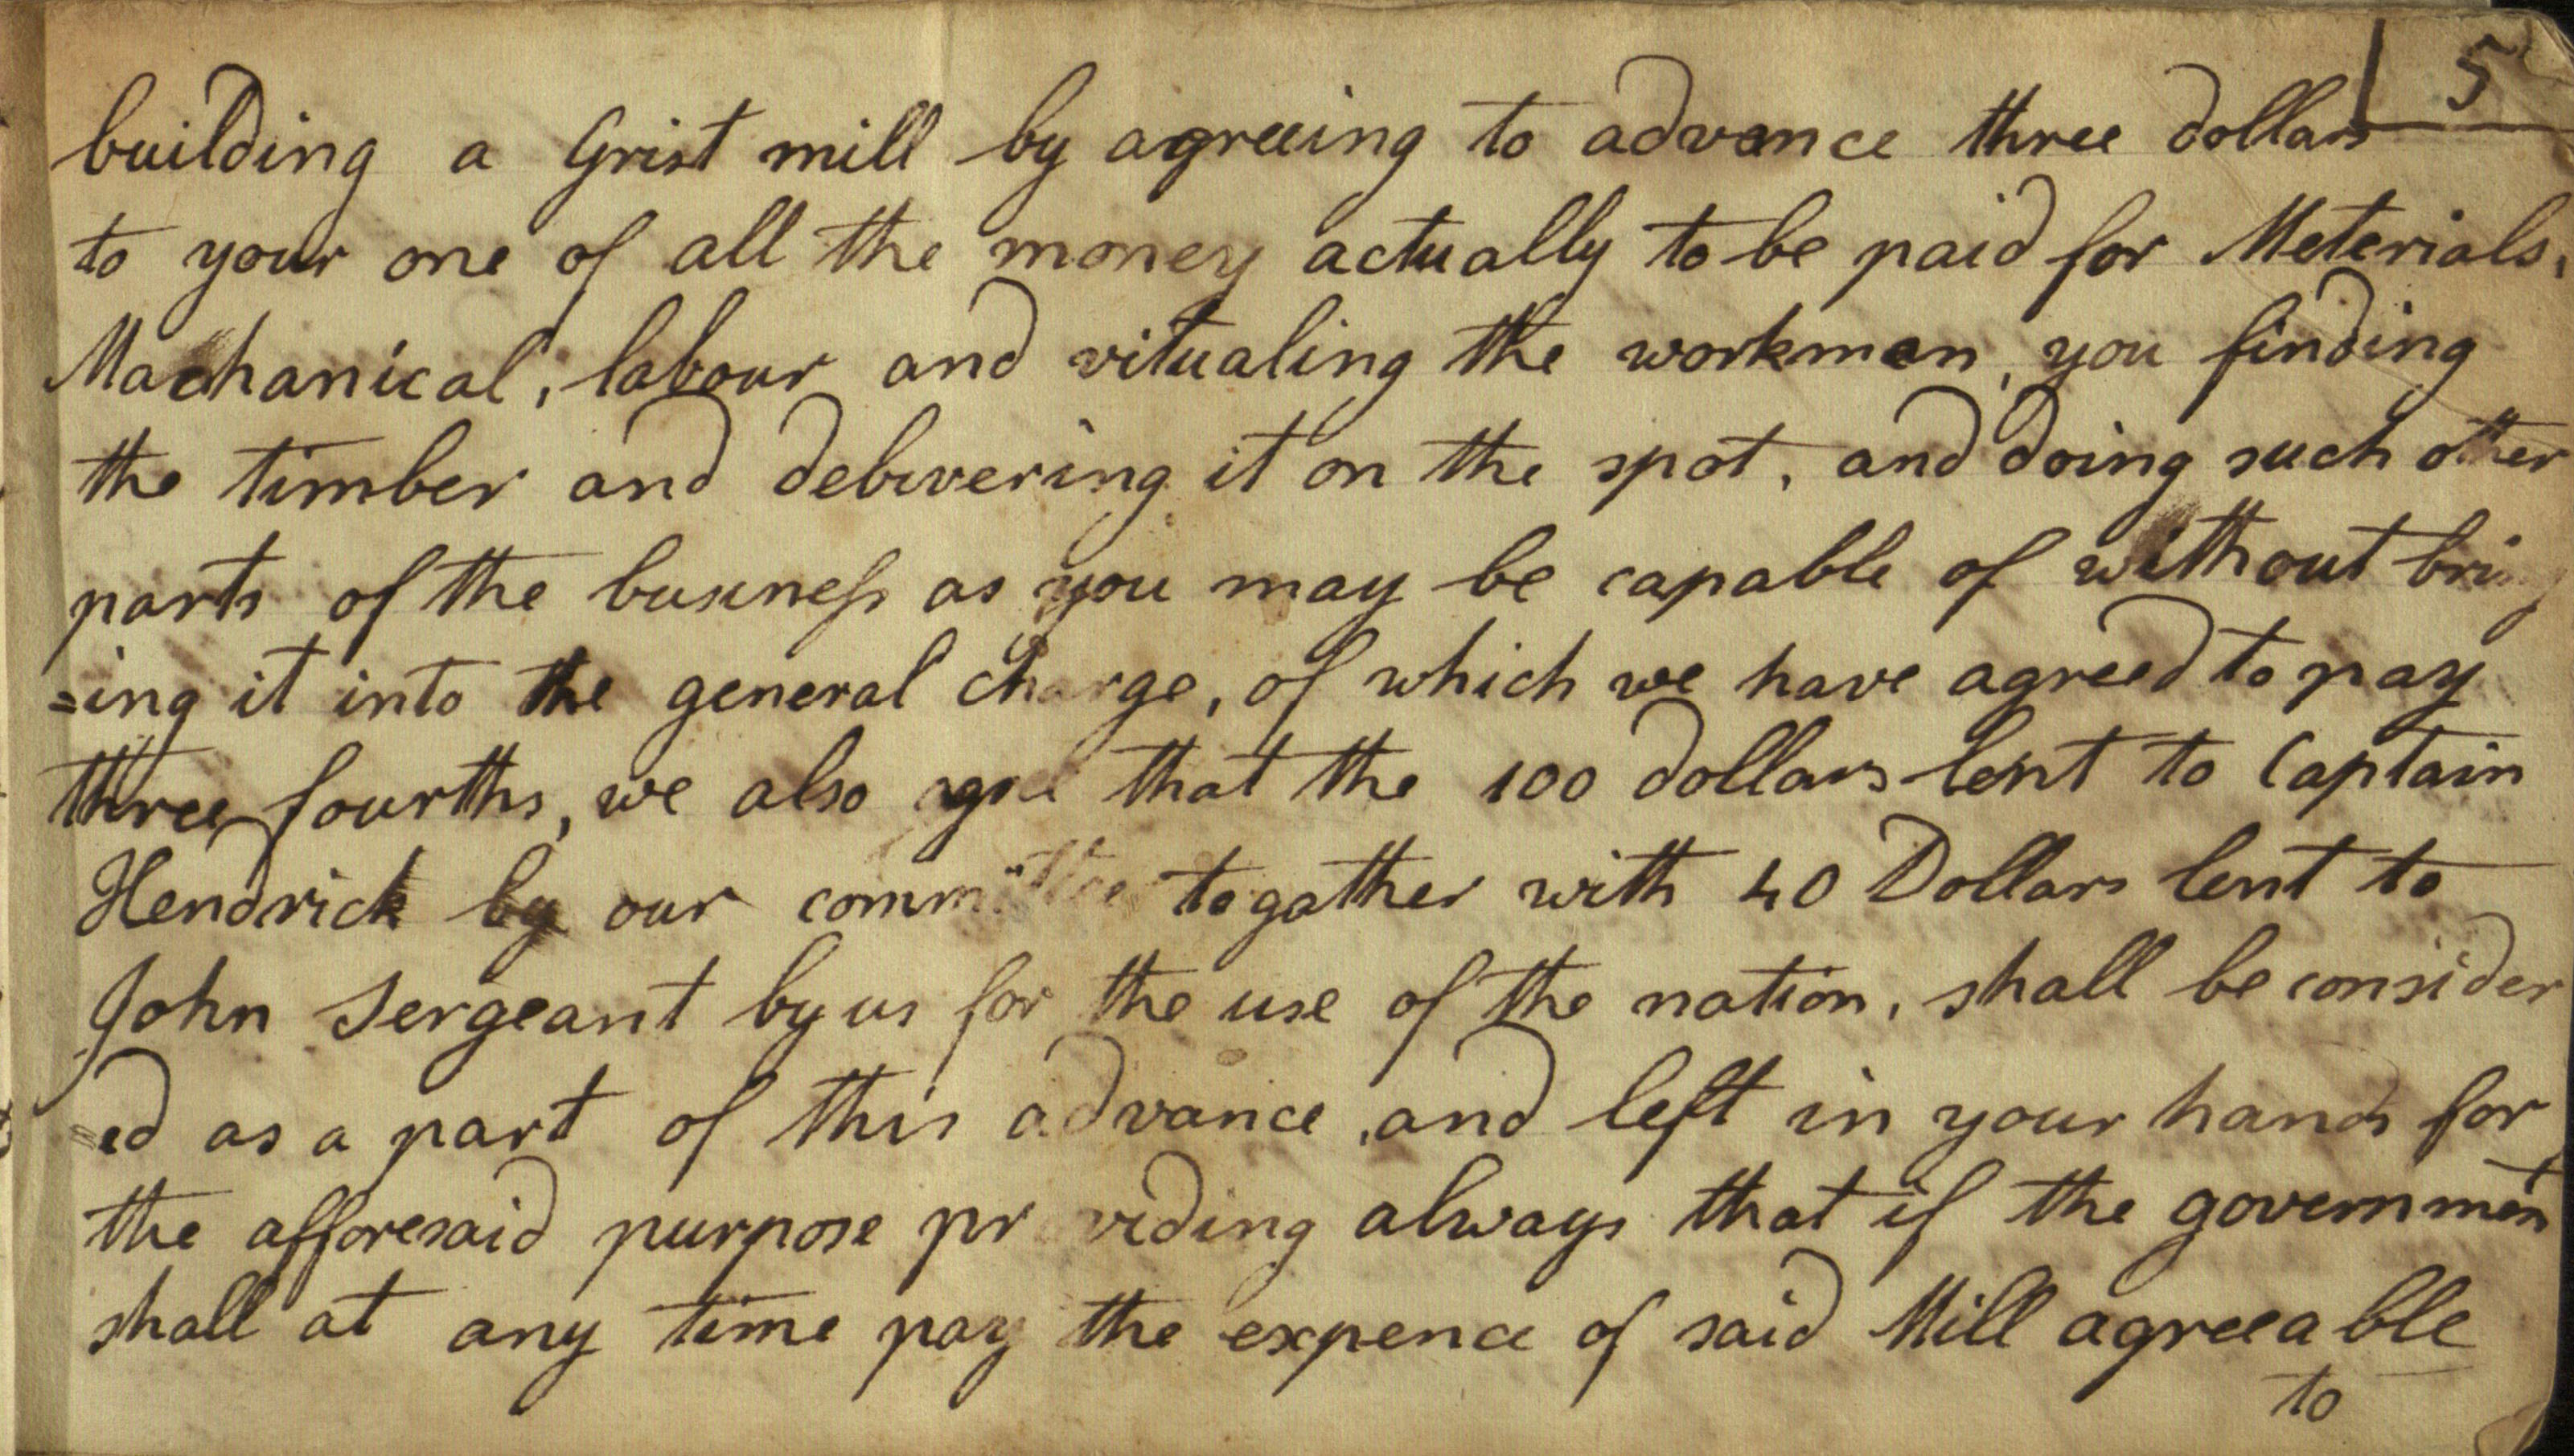 5
building a Grist mill by agreeing to advance three dollars
to your one of all the money actually to be paid for Meterials,
Machanical, labour and vitualing the workmen, you finding
the timber and delivering it on the spot, and doing such other
parts of the business as you may be capable of without bring
=ing it into the general charge, of which we have agreed to pay
three fourths, we also agree that the 100 dollars lent to Captain
Hendrick by our committee togather with 40 Dollars lent to
John Sergeant by us for the use of the nation, shall be consider
=ed as a part of this advance, and left in your hands for
the afforesaid purpose providing always that if the governmen
shall at any time pay the expence of said Mill agreeable
to